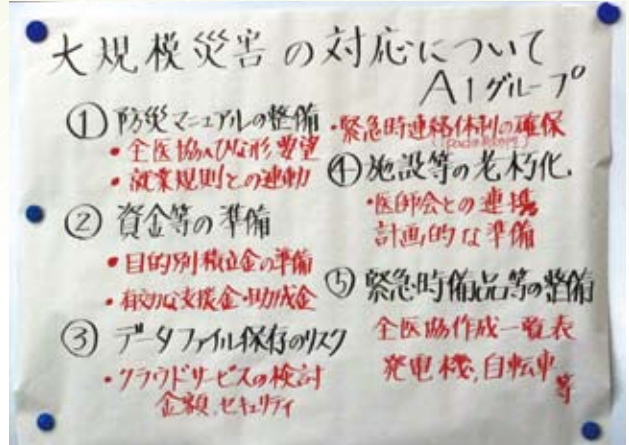 大規模災害の対応について
A1グループ
① 防災マニュアルの整備
・全医協へひな形要望
・就業規則との連動
・緊急時連絡体制の確保
② 資金等の準備
・目的別積立金の準備
・有効な支援金・助成金
③ データファイル保存のリスク
・クラウドサービスの検討
金額、セキュリティ
④ 施設等の老朽化
・医師会との連携
計画的な準備
⑤ 緊急時備品等の整備
全医協作成一覧表
発電機、自転車等